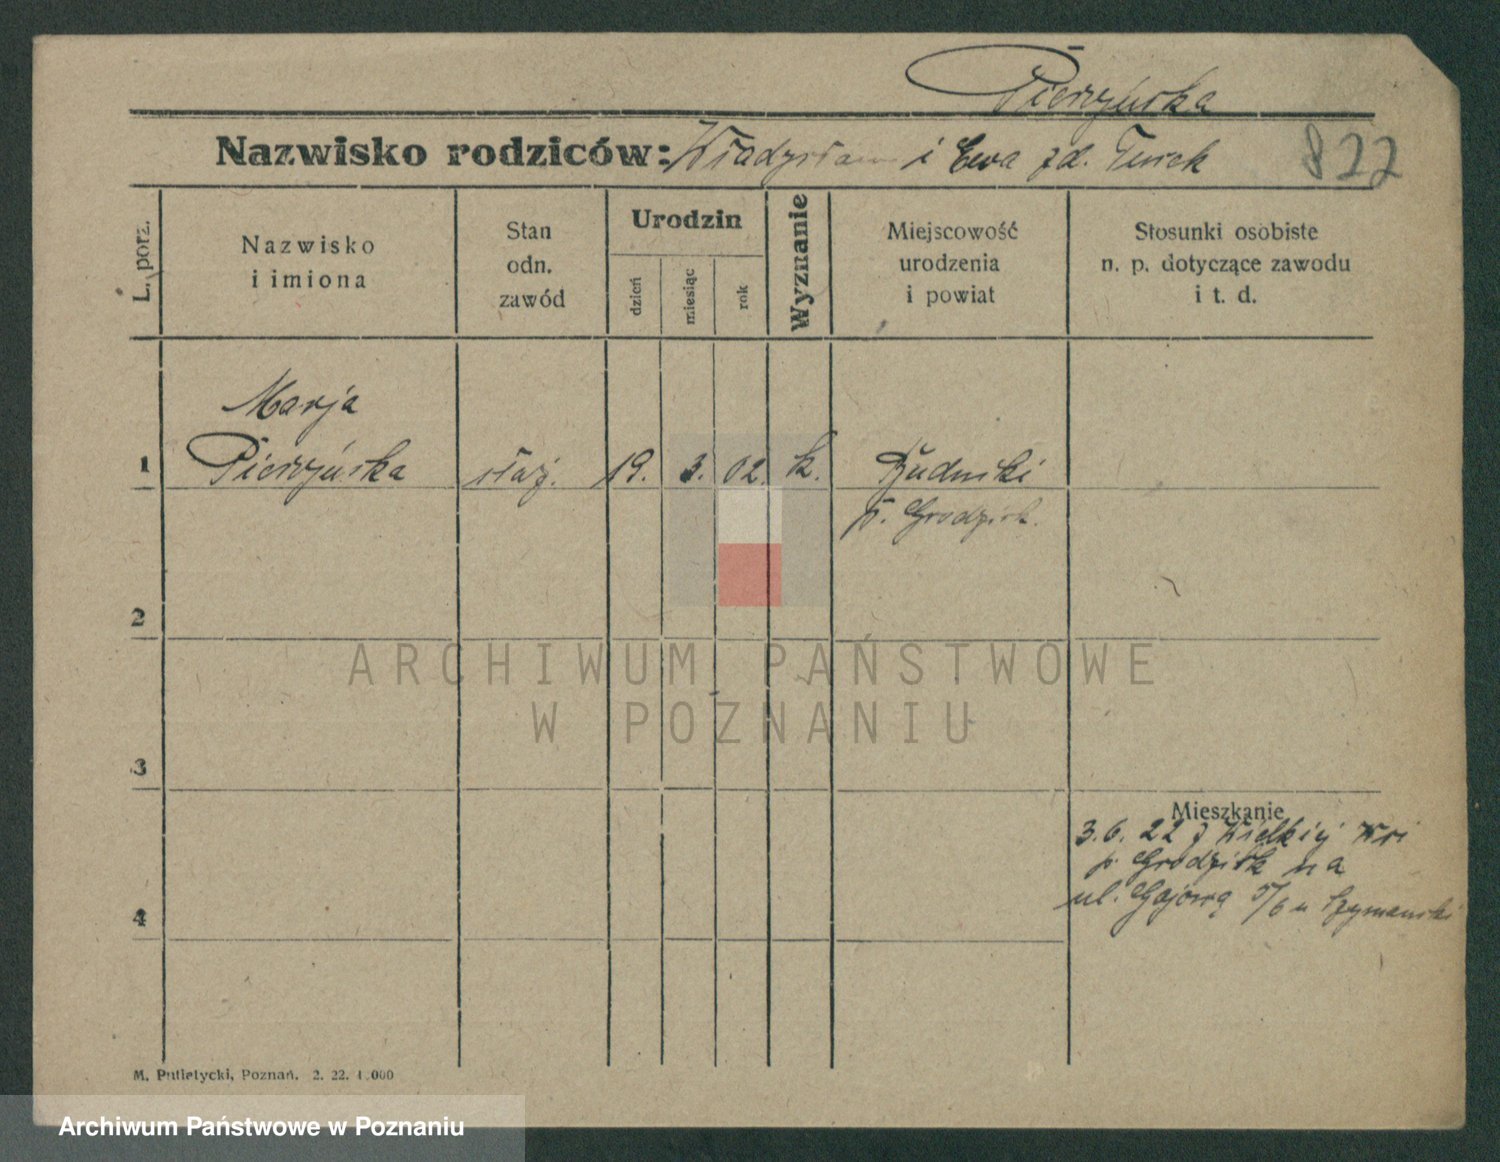 Pierzyńska
Nazwisko rodziców: Władysław i Ewa zd. Turek 822
L. porz.
Nazwisko
i imiona
Stan
odn.
zawód
Urodzin
dzień
miesiąc
rok
Wyznanie
Miejscowość
urodzenia
i powiat
Stosunki osobiste
n. p. dotyczące zawodu
i t. d.
Marja
1 Pierzyńska służ. 19. 3. 02. k.
p. Grodzisk.
2
ARCHIWUM PAŃSTWOWE
W POZNANIU
3
Mieszkanie
3. 6. 22 z Wielkiej Wsi
p. Grodzisk na
4
ul. Gajową 5/6 u Szymanski
M. Putiatycki, Poznań. 2. 22. 1.000
Archiwum Państwowe w Poznaniu